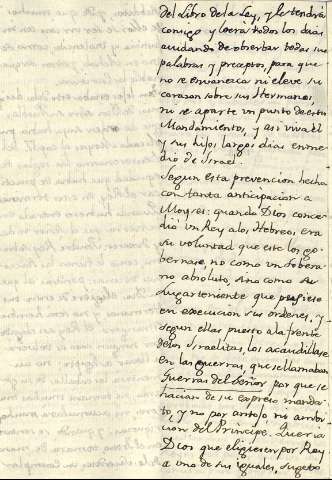 del Libro de la Ley, y le tendrá
consigo y leera todos los dias
cuidando de observar todas sus
palabras y preceptos, para que
no se envanezca ni eleve su
corazon sobre sus Hermanos,
ni se aparte un punto de estos
Mandamientos, y asi viva el
y sus hijos largos dias en me-
dio de Israel.
Segun esta prevencion hecha
con tanta anticipacion a
Moyses: quando Dios conce-
dió un Rey a los Hebreos, era
su voluntad que este los go-
bernase, no como un sobera-
no absoluto, sino como su
lugarteniente que pusiese
en execucion sus ordenes, y
segun ellas puesto a la frente
de los Israelitas, los acaudillase
en las guerras, que se llamaban
Guerras del Señor por que se
hacian de su expreso manda-
to, y no por antojo ni ambi-
cion del Principe. Queria
Dios que eligiesen por Rey
a uno de sus iguales, sugeto